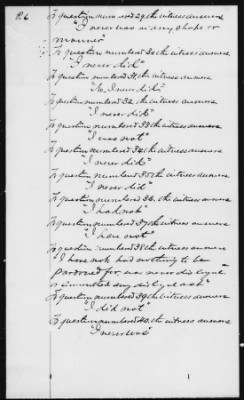 To question numbered 29th witness answers
"I never was in any shape or
manner"
To question numbered 30th witness answers
"I never did"
To question numbered 31st witness answers
"No, I never did"
To question numbered 32 the witness answers
"I never did"
To question numbered 33th witness answers
"I was not"
To question numbered 34th witness answers
"I never did"
To question numbered 35th witness answers
"I never did"
To question numbered 36th witness answers
"I had not"
To question numbered 37th witness answers
"I have not"
To question numbered 38th witness answers
"I have not had nothing to be
pardoned for, was never disloyal
or committed any disloyal act"
To question numbered 39th witness answers
"I did not"
To question numbered 40th witness answers
"I never was"